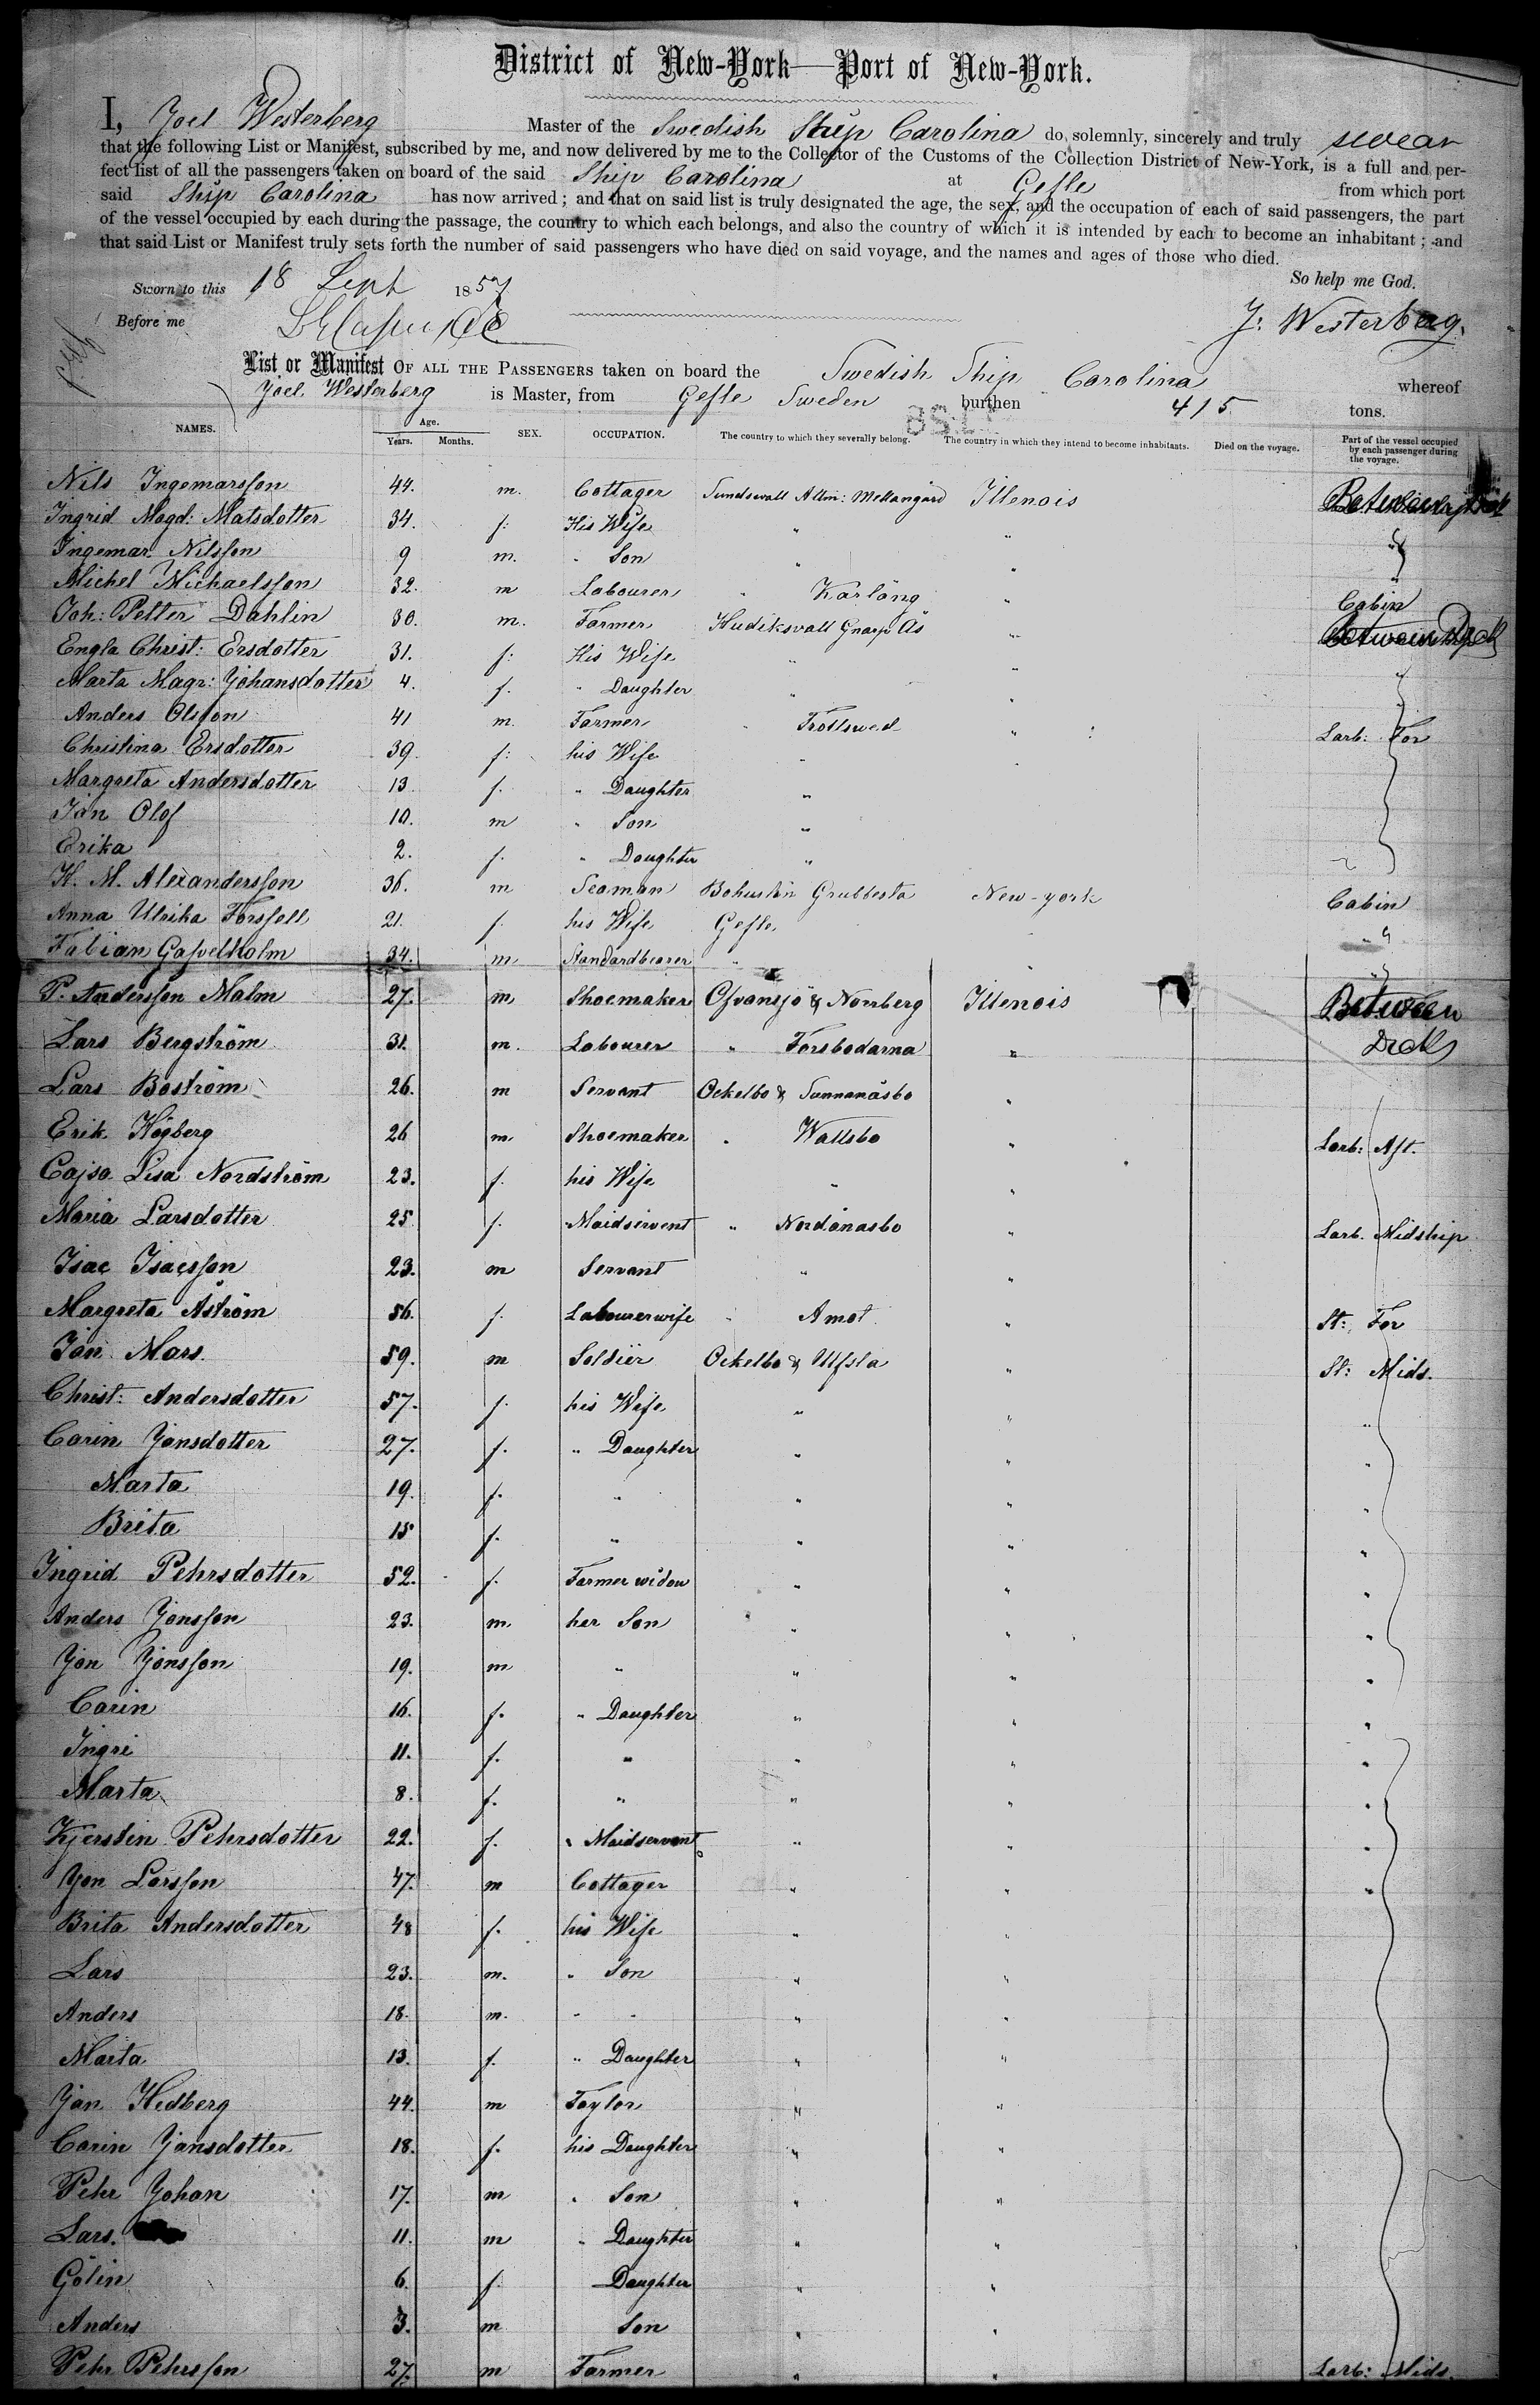 District of New-York—Port of New-York.
I, Joel Westerberg Master of the Swedish Ship Carolina do, solemnly, sincerely and truly swear
that the following List or Manifest, subscribed by me, and now delivered by me to the Collector of the Customs of the Collection District of New-York, is a full and per-
fect list of all the passengers taken on board of the said Ship Carolina at Gefle from which port
said Ship Carolina has now arrived; and that on said list is truly designated the age, the sex, and the occupation of each of said passengers, the part
of the vessel occupied by each during the passage, the country to which each belongs, and also the country of which it is intended by each to become an inhabitant; and
that said List or Manifest truly sets forth the number of said passengers who have died on said voyage, and the names and ages of those who died.
So help me God.
Sworn to this 18 Sept 1857
Before me
J: Westerberg.
List or Manifest OF ALL THE PASSENGERS taken on board the Swedish Ship Carolina whereof
Joel Westerberg is Master, from Gefle Sweden burthen 415 tons.
NAMES. Age. Years. Months. SEX. OCCUPATION. The country to which they severally belong. The country in which they intend to become inhabitants. Died on the voyage. Part of the vessel occupied by each passenger during the voyage.
Nils Ingemarsson 44. m. Cottager Sundswall Attm: Mellangård Illenois
Ingrid Magd: Matsdotter 34. f: His Wife " "
Ingemar Nilsson 9 m. " Son " "
Michel Michaelsson 32. m Labourer " Karläng " Cabin
Joh: Petter Dahlin 30. m. Farmer Hudikswall Gnarp Ås " Between Deck
Engla Christ: Ersdotter 31. f: His Wife " "
Marta Magr: Johansdotter 4. f. " Daughter " "
Anders Olsson 41 m. Farmer " Trottswed " Larb: For
Christina Ersdotter 39. f: his Wife " "
Margreta Andersdotter 13 f. " Daughter "
Jan Olof 10. m " Son "
Erika 2. f. " Daughter "
H. M. Alexandersson 36. m Seaman Bohuslän Grebbesta New-york Cabin
Anna Ulrika Forssell 21. f. his Wife Gefle "
Fabian Gasselholm 34. m Standardbearer " "
P. Andersson Malm 27. m Shoemaker Ofvansjö & Norrberg Illenois Between
Lars Bergström 31. m. Labourer " Forsbodarna " Deck
Lars Boström 26. m Servant Ockelbo & Sunnanåsbo "
Erik Högberg 26 m. Shoemaker " Wallsbo " Larb: Aft.
Cajsa Lisa Nordström 23. f. his Wife " "
Maria Larsdotter 25 f. Maidservent " Nordanasbo " Larb. Midship
Isac Isacsson 23. m Servant " "
Margreta Åström 56. f. Labourerwife " Amot " St: For
Jan Mars. 59. m Soldier Ockelbo & Ulfsta " St: Mids.
Christ: Andersdotter 57. f. his Wife " " "
Carin Jansdotter 27. f. " Daughter " " "
Marta 19. f. " " " "
Brita 15 f. " " " "
Ingrid Pehrsdotter 52. f. Farmer widow " " "
Anders Jonsson 23. m. her Son " " "
Jon Jonsson 19. m " " " "
Carin 16. f. " Daughter " " "
Ingri 11. f. " " " "
Marta 8. f. " " " "
Kjerstin Pehrsdotter 22. f. " Maidservant " " "
Jon Larsson 47. m Cottager " " "
Brita Andersdotter 48 f. his Wife " "
Lars 23. m. " Son " "
Anders 18. m. " " " "
Marta 13. f. " Daughter " "
Jan Hedberg 44. m Taylor " "
Carin Jansdotter 18. f. his Daughter " "
Pehr Johan 17. m " Son " "
Lars. 11. m " Daughter " "
Gölin 6. f. Daughter " "
Anders 3. m Son " "
Pehr Pehrsson 27. m Farmer " " Larb: Mids.